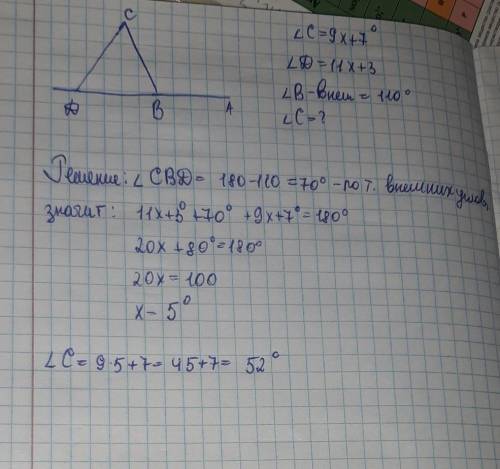 C
∠C = 9x+7°
∠D = 11x+3
∠B - внеш = 110°
∠C = ?
D B A
Решение: ∠CBD = 180-110 = 70° - по т. внешних углов,
значит: 11x+3° + 70° + 9x+7° = 180°
20x + 80° = 180°
20x = 100
x - 5°
∠C = 9·5+7 = 45+7 = 52°